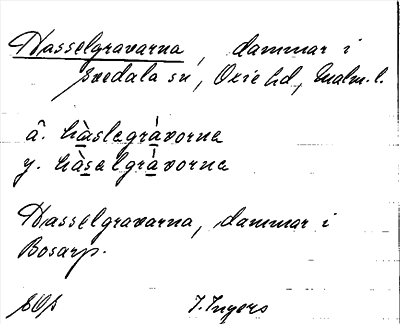 Hasselgravarna, dammar i
Svedala sn, Oxie hd, Malm. l.
â. hàslegrávorne
y. hàselgrávorne
Hasselgravarna, dammar i
Bosarp.
I. Ingers